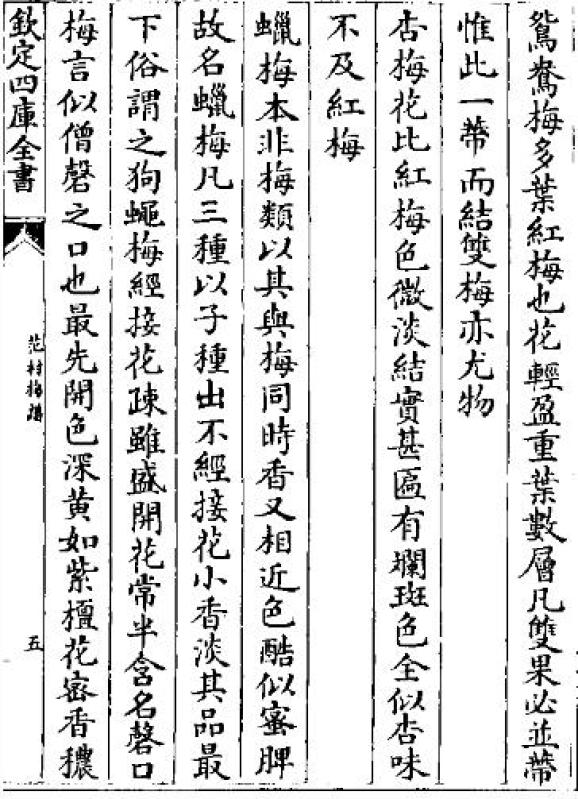 鴛鴦梅多葉紅梅也花輕盈重葉數層凡雙果必並蔕
惟此一蔕而結雙梅亦尤物
杏梅花比紅梅色微淡結實甚匾有斕斑色全似杏味
不及紅梅
蠟梅本非梅類以其與梅同時香又相近色酷似蜜脾
故名蠟梅凡三種以子種出不經接花小香淡其品最
下俗謂之狗蠅梅經接花疎雖盛開花常半含名磬口
梅言似僧磬之口也最先開色深黄如紫檀花宻香穠
欽定四庫全書
范村梅譜
五